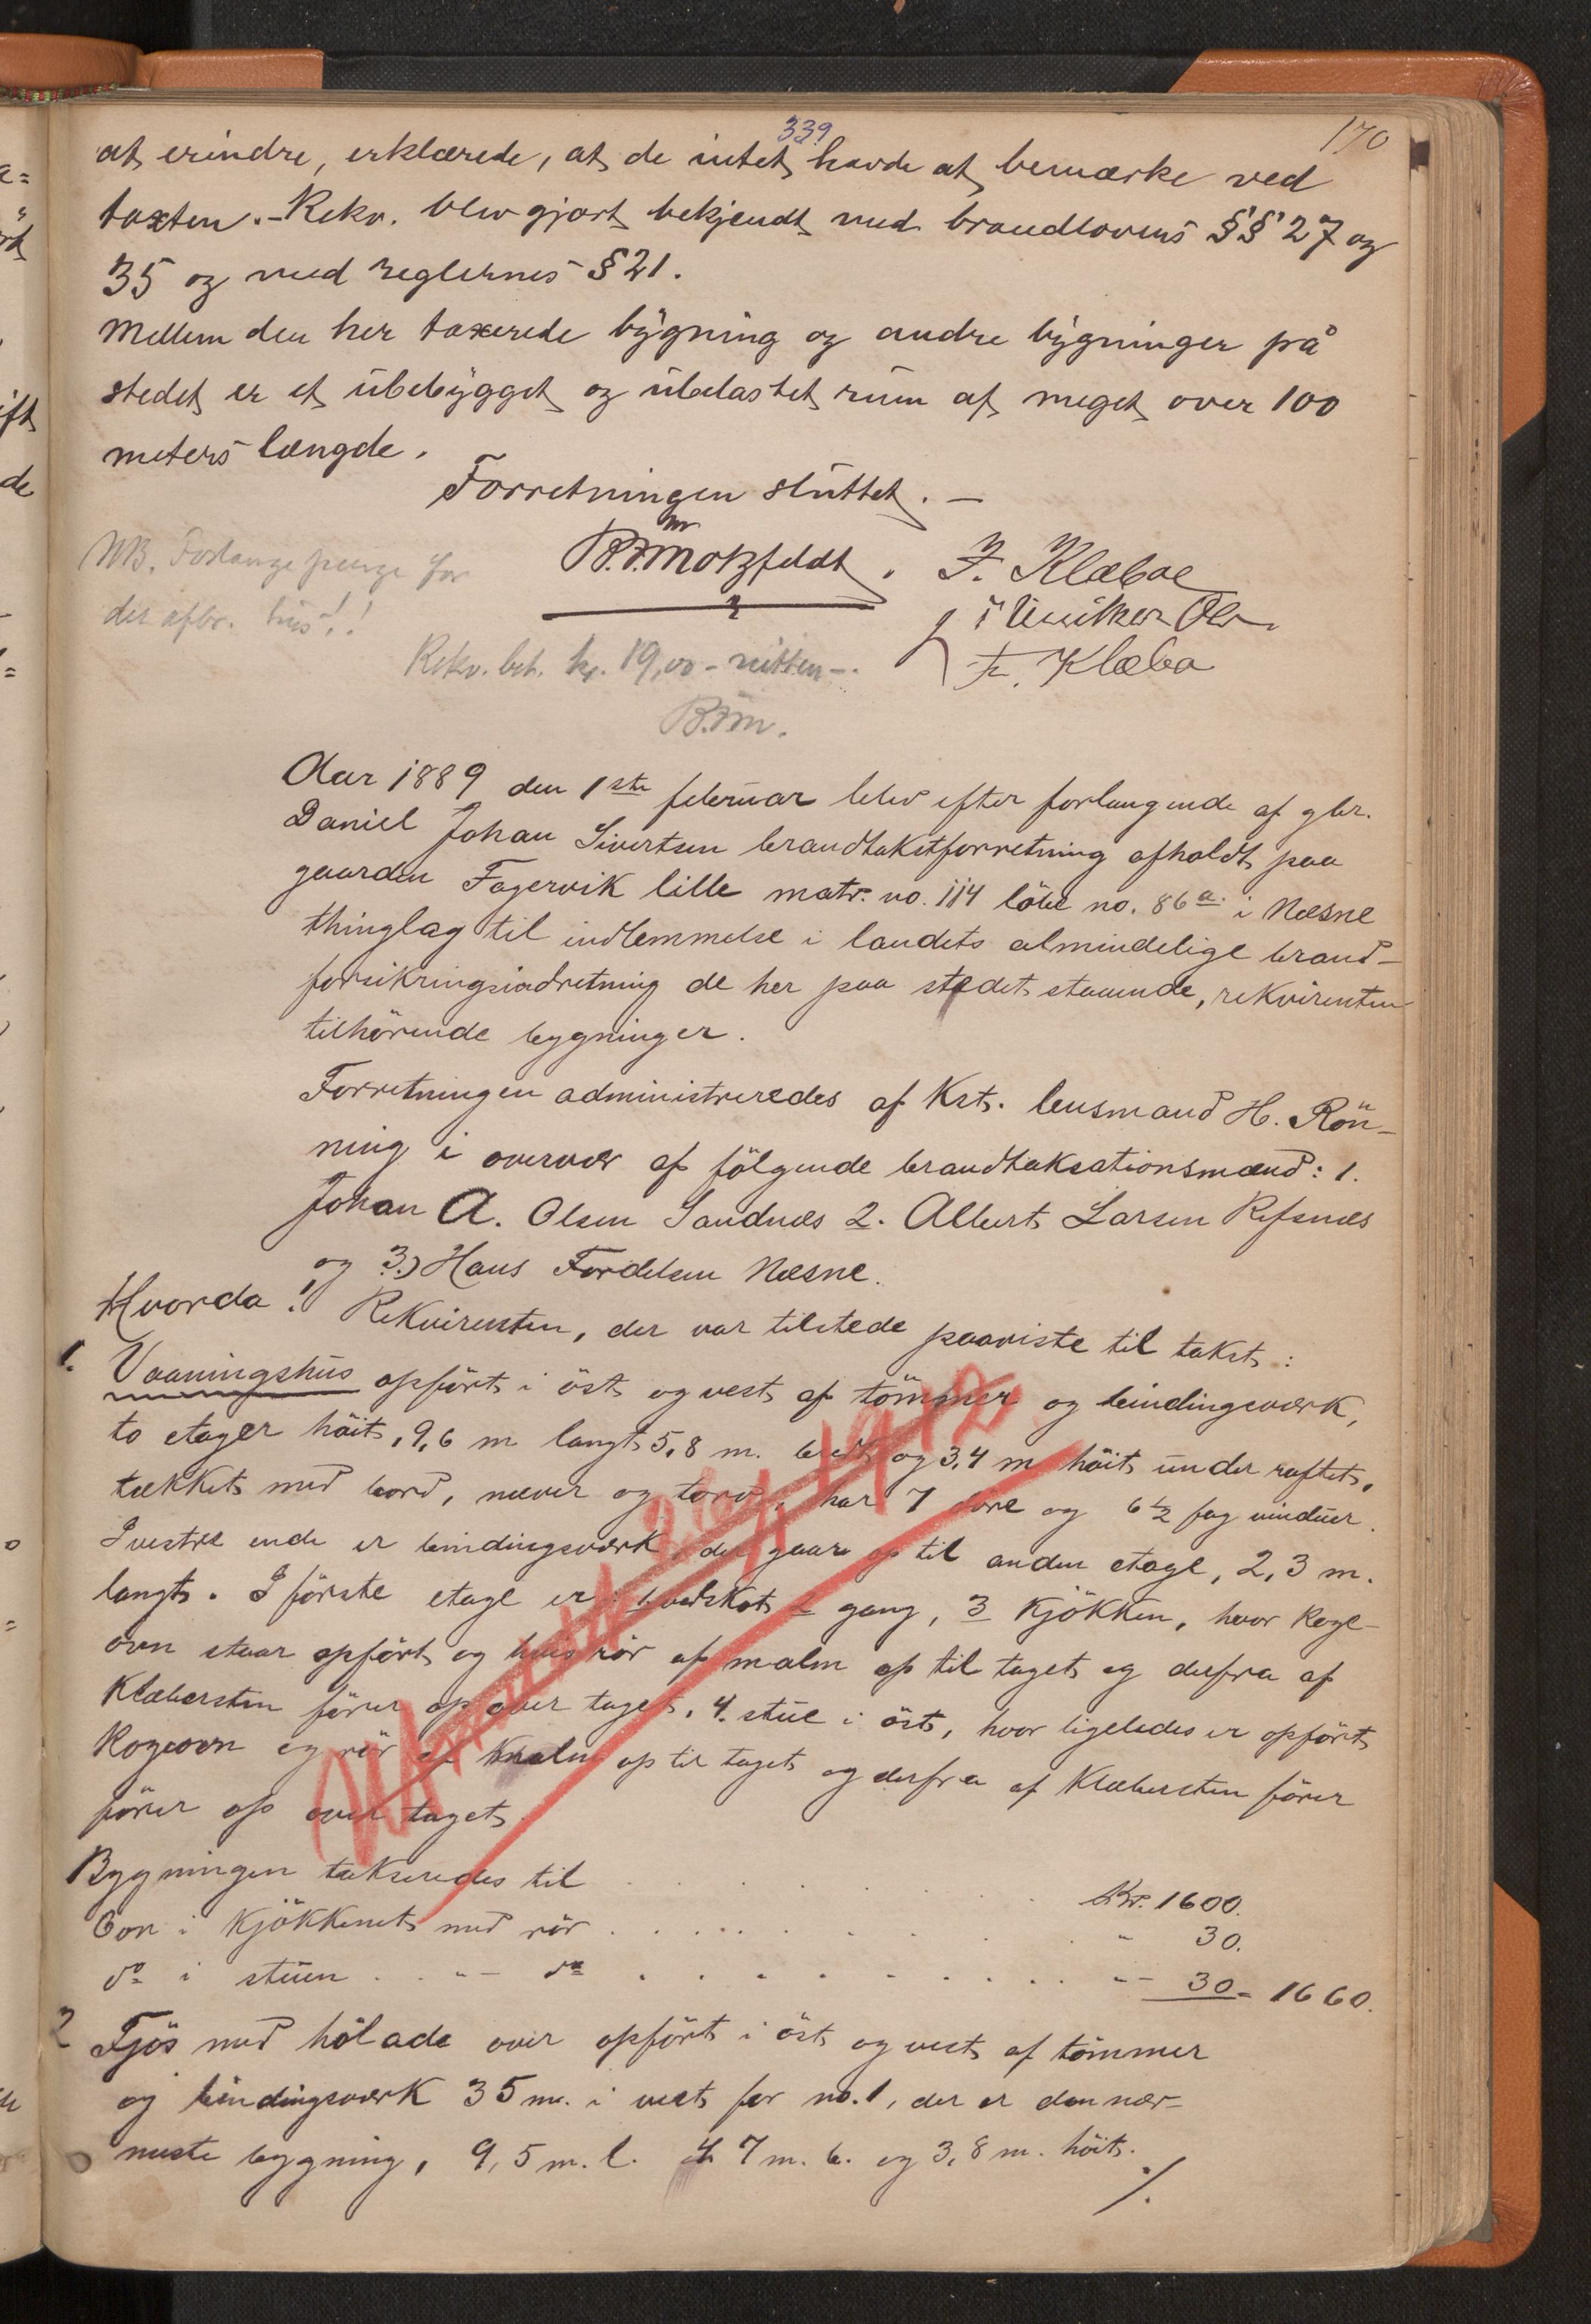 339
170
at erindre, erklærede, at de intet havde at bemærke ved
taxten. - Rekv. blev gjort bekjendt med brandlovens §§ 27 og
35 og med reglernes § 21.
Mellem den her taxerede bygning og andre bygninger på
stedet er et ubebygget og ubelastet rum af meget over 100
meters længde.
Forretningen sluttet. -
B.F. Motzfeldt. F. Klæboe
NB. Forlange penge for
det afbr. hus!!
F. Klæboe
Rekv. bet. kr. 19,00 - nitten -.
B.F.M.
Aar 1889 den 1ste februar blev efter forlangende af gbr.
Daniel Johan Sivertsen brandtakstforretning afholdt paa
gaarden Fagervik lille matr. no. 114 løbe no. 86a. i Næsne
thinglag til indlemmelse i landets almindelige brand-
forsikringsindretning de her paa stedet staaende, rekvirenten
tilhörende bygninger.
Forretningen administreredes af Kst. lensmand H. Rön-
ning i overvær af fölgende brandtaksationsmænd: 1.
Johan A. Olsen Sandnæs 2. Albert Larsen Refsnæs
og 3.) Hans Fordelsen Næsne.
Hvorda! Rekvirenten, der var tilstede paaviste til takst:
1. Vaaningshus opfört i öst og vest af tömmer og bindingsværk,
to etager höit, 9,6 m langt 5,8 m. bredt og 3,4 m höit under raftet,
tækket med bord, næver og torv, har 7 döre og 6 1/2 fag vinduer.
I vestre ende er bindingsværk, der gaar op til anden etage, 2,3 m.
langt. I förste etage er: 1 vedskot 2 gang, 3 Kjökken, hvor koge-
ovn staar opfört og hvis rör af malm op til taget og derfra af
Klæbersten förer op over taget, 4. stue i öst, hvor ligeledes er opfört
Kogeovn og rör af malm op til taget og derfra af Klæbersten förer
förer op over taget.
Bygningen takseredes til . . . . Kr. 1600.
Ovn i Kjökkenet med rör . . . . " 30.
do i stuen . . -"- do . . . . "- 30 = 1660.
2 Fjös med hölade over opfört i öst og vest af tömmer
og bindingsværk 35 m. i vest for no. 1, der er den nær-
meste bygning, 9,5 m. l. 7 m. b. og 3,8 m. höit.
./.